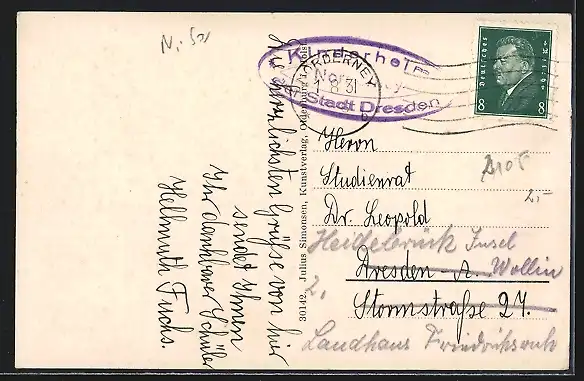 N. 5
Kinderheim
Nor y
Stadt Dresden
NORDERNEY
1.8.31
Deutsches Reich
8 8
Die herzlichsten Grüße von hier
sendet Ihnen
Ihr dankbarer Schüler
Hellmuth Fuchs.
30142. Julius Simonsen, Kunstverlag, Oldenburg i. Holst.
Herrn
Studienrat
Dr. Leopold
Heidebrück Insel
Dresden-A. Wollin
2.
Stormstraße 27.
Landhaus Friedrichsruh
2,-